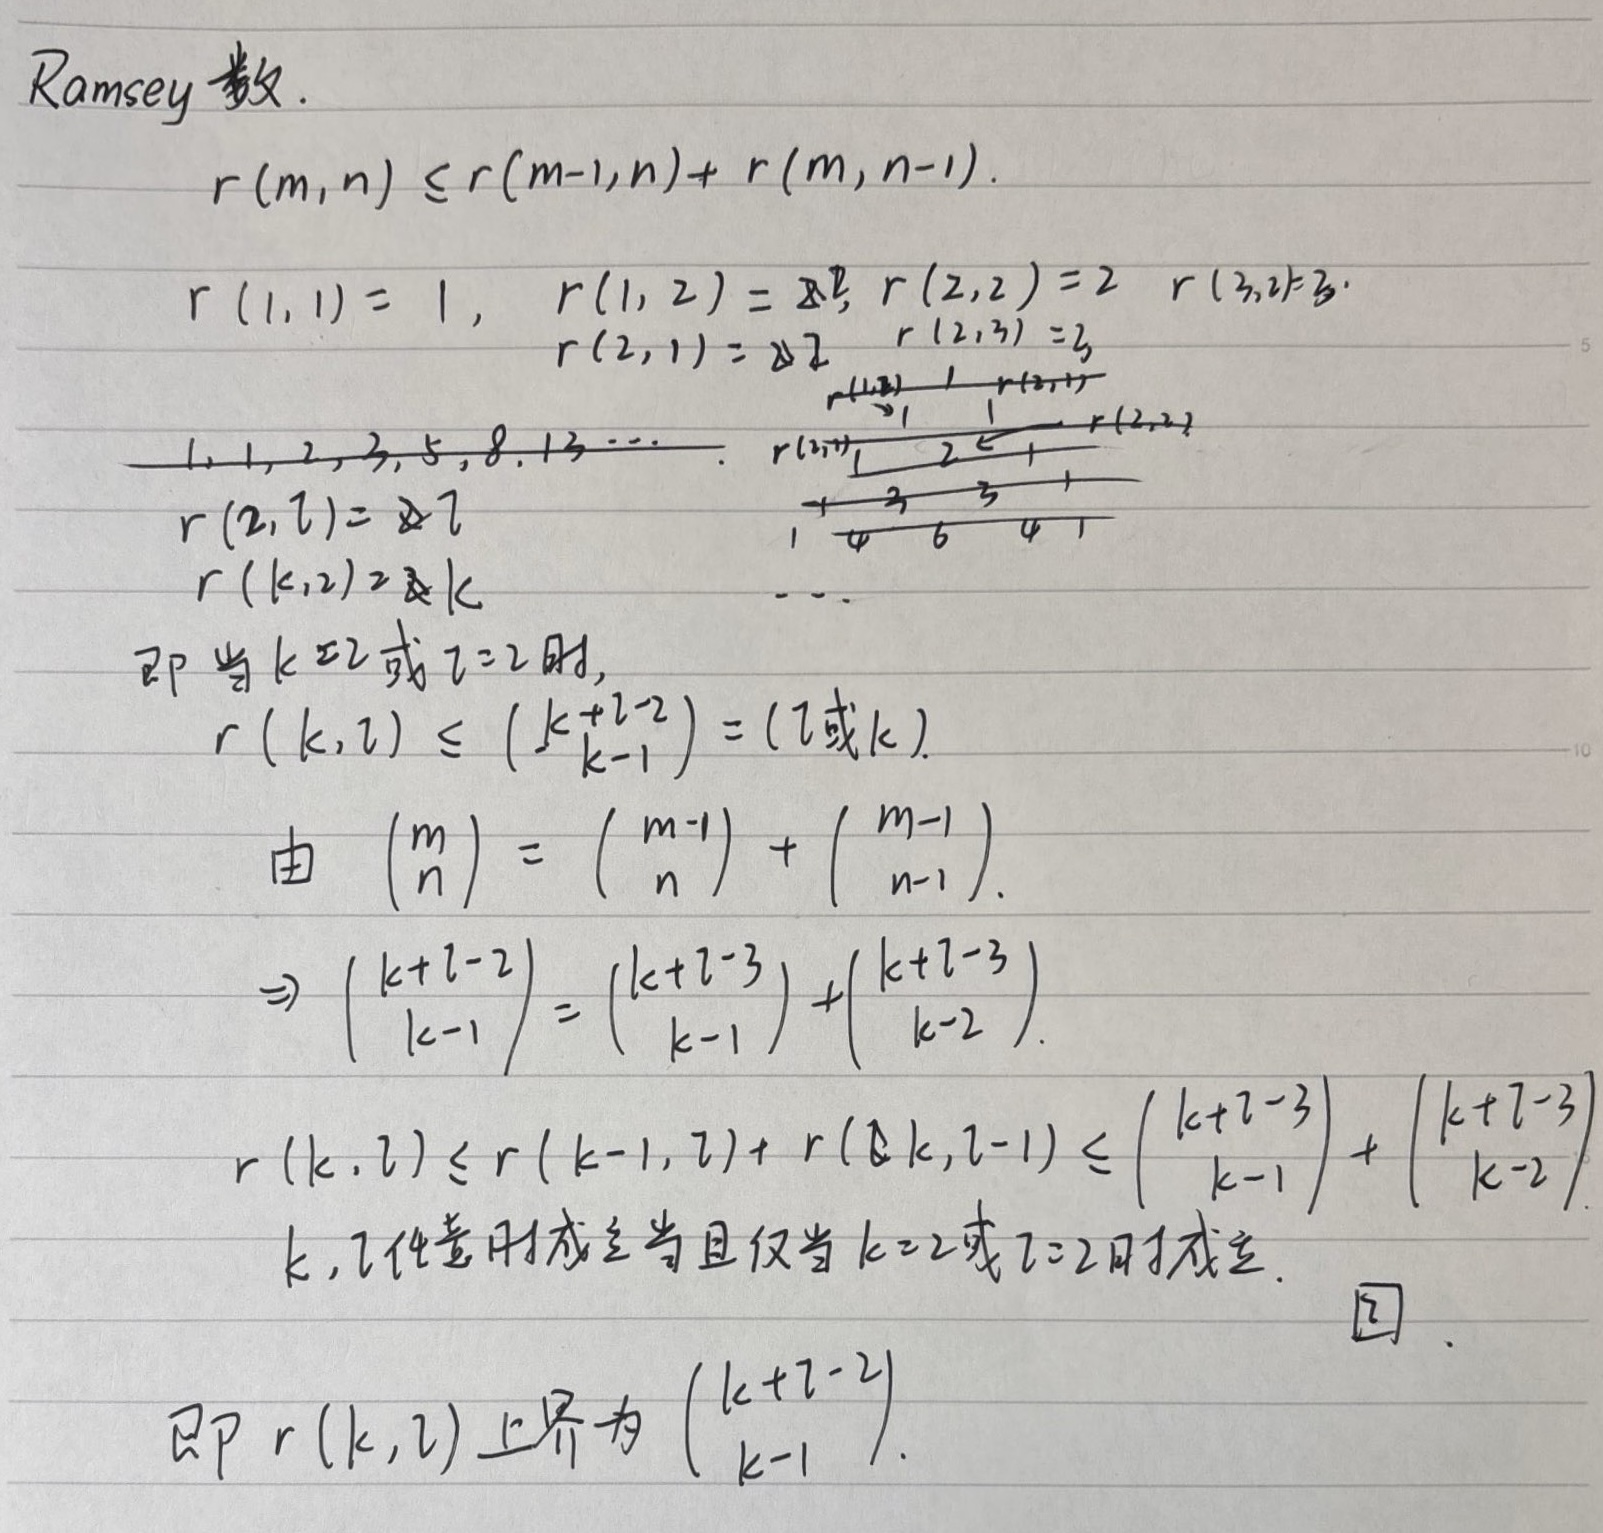 Ramsey 数.
r(m,n) ≤ r(m-1,n) + r(m,n-1).
r(1,1) = 1, r(1,2) = r(2,2) = 2 r(3,2)=3.
r(2,1) = r(2,3) = 3
r(1,2) 1 r(2,1)
1 1
1, 1, 2, 3, 5, 8, 13 ... r(2,2)
1 2 1
r(2,l) = l
1 3 3 1
1 4 6 4 1
r(k,2) = k
...
即当 k=2 或 l=2 时,
r(k,l) ≤ (k+l-2 \\ k-1) = (l或k).
由 (m \\ n) = (m-1 \\ n) + (m-1 \\ n-1).
⇒ (k+l-2 \\ k-1) = (k+l-3 \\ k-1) + (k+l-3 \\ k-2).
r(k,l) ≤ r(k-1,l) + r(k,l-1) ≤ (k+l-3 \\ k-1) + (k+l-3 \\ k-2).
k,l任意时成立当且仅当 k=2或l=2时成立.
即 r(k,l) 上界为 (k+l-2 \\ k-1).